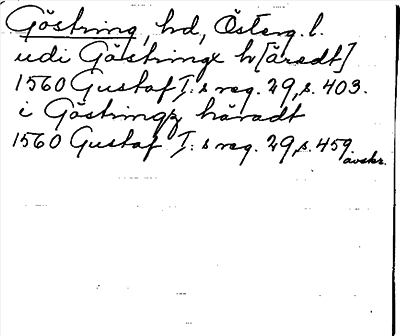 Göstring, hd, Österg. l.
udi Göstringx h[äredt]
1560 Gustaf I:s reg. 29, s. 403.
i Göstringz häradt
1560 Gustaf I:s reg. 29, s. 459
avskr.